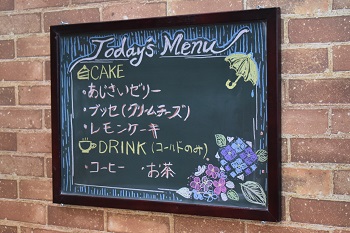 Today's Menu
CAKE
・あじさいゼリー
・ブッセ(クリームチーズ)
・レモンケーキ
DRINK (コールドのみ)
・コーヒー ・お茶